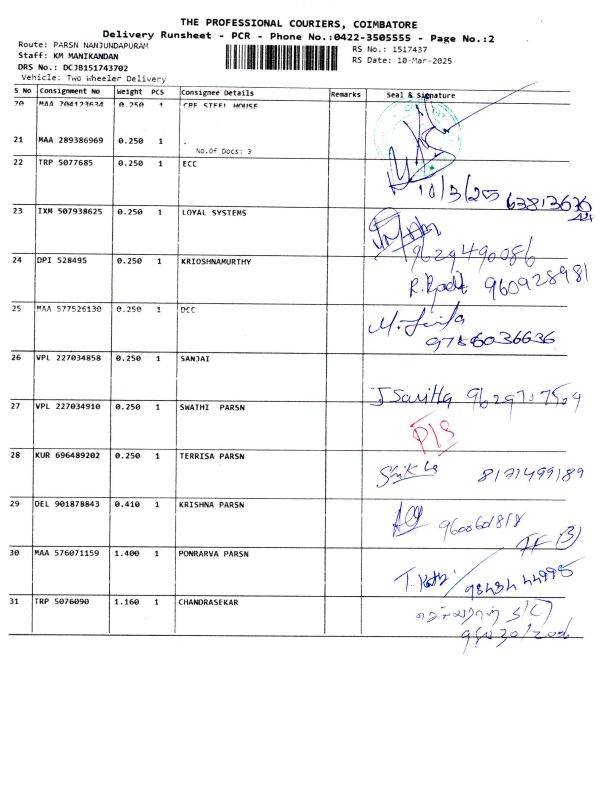 THE PROFESSIONAL COURIERS, COIMBATORE
Delivery Runsheet - PCR - Phone No.:0422-3505555 - Page No.:2
Route: PARSN NANJUNDAPURAM
Staff: KM MANIKANDAN
DRS No.: DCJB151743702
Vehicle: Two Wheeler Delivery
RS No.: 1517437
RS Date: 10-Mar-2025
S No Consignment No Weight PCS Consignee Details Remarks Seal & Signature
20 MAA 704123634 0.250 1 CBE STEEL HOUSE
21 MAA 289386969 0.250 1 .
No.Of Docs: 3
22 TRP 5077685 0.250 1 ECC
10/3/25
23 IXM 507938625 0.250 1 LOYAL SYSTEMS
9629490086
24 DPI 528495 0.250 1 KRIOSHNAMURTHY
9600928981
25 MAA 577526130 0.250 1 DCC
9786036636
26 VPL 227034858 0.250 1 SANJAI
J Savitha 9629707509
27 VPL 227034910 0.250 1 SWATHI PARSN
P/S
28 KUR 696489202 0.250 1 TERRISA PARSN
8171499189
29 DEL 901878843 0.410 1 KRISHNA PARSN
30 MAA 576071159 1.400 1 PONRARVA PARSN
31 TRP 5076090 1.160 1 CHANDRASEKAR